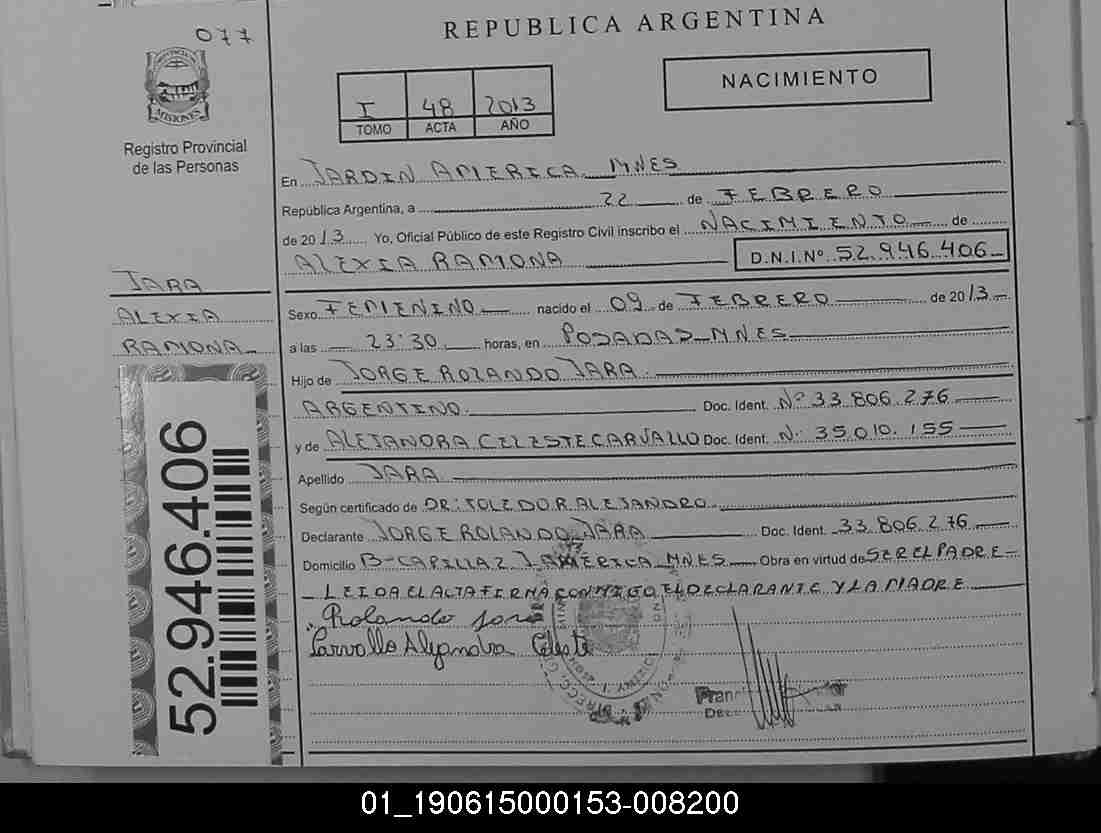 077
REPUBLICA ARGENTINA
PROVINCIA DE
MISIONES
Registro Provincial
de las Personas
I 48 2013
TOMO ACTA AÑO
NACIMIENTO
En JARDIN AMERICA MNES
República Argentina, a 22 de FEBRERO
de 2013 Yo, Oficial Público de este Registro Civil inscribo el NACIMIENTO de
ALEXIA RAMONA D.N.I.Nº 52.946.406
JARA
ALEXIA
RAMONA
Sexo FEMENINO nacido el 09 de FEBRERO de 2013
a las 23:30 horas, en POSADAS MNES
Hijo de JORGE ROLANDO JARA
ARGENTINO Doc. Ident. Nº 33.806.276
y de ALEJANDRA CELESTE CARVALLO Doc. Ident. N: 35.010.155
Apellido JARA
Según certificado de DR: TOLEDO R. ALEJANDRO
Declarante JORGE ROLANDO JARA Doc. Ident. 33.806.276
Domicilio Bº CAPILLA 2 J. AMERICA MNES Obra en virtud de SER EL PADRE
LEIDA EL ACTA FIRMA CONMIGO EL DECLARANTE Y LA MADRE
Rolando Jara
Carvallo Alejandra Celeste
Fran
52.946.406
01_190615000153-008200